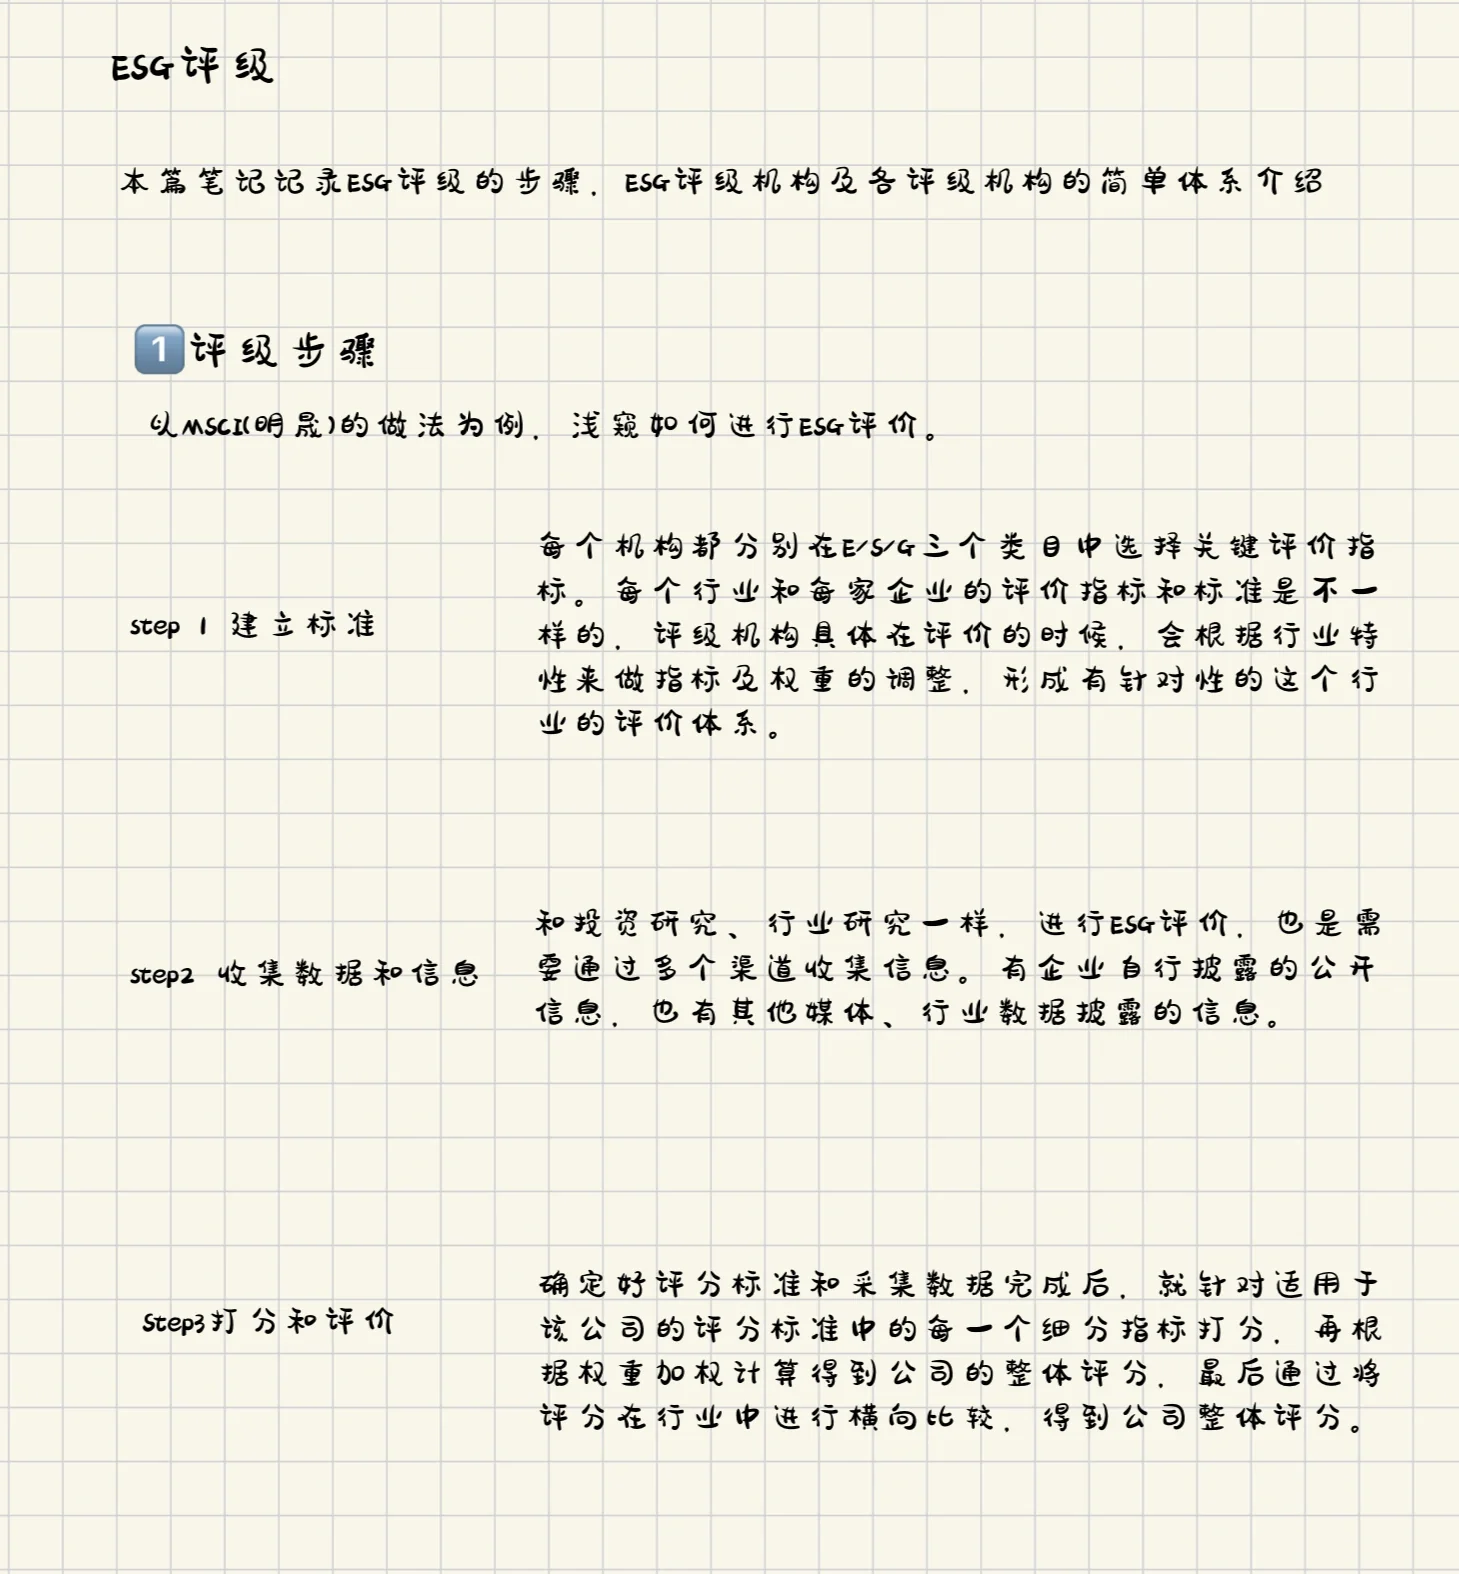 ESG评级
本篇笔记记录ESG评级的步骤，ESG评级机构及各评级机构的简单体系介绍
1 评级步骤
以MSCI(明晟)的做法为例，浅窥如何进行ESG评价。
step 1 建立标准
每个机构都分别在E/S/G三个类目中选择关键评价指
标。每个行业和每家企业的评价指标和标准是不一
样的，评级机构具体在评价的时候，会根据行业特
性来做指标及权重的调整，形成有针对性的这个行
业的评价体系。
step2 收集数据和信息
和投资研究、行业研究一样，进行ESG评价，也是需
要通过多个渠道收集信息。有企业自行披露的公开
信息，也有其他媒体、行业数据披露的信息。
Step3打分和评价
确定好评分标准和采集数据完成后，就针对适用于
该公司的评分标准中的每一个细分指标打分，再根
据权重加权计算得到公司的整体评分，最后通过将
评分在行业中进行横向比较，得到公司整体评分。